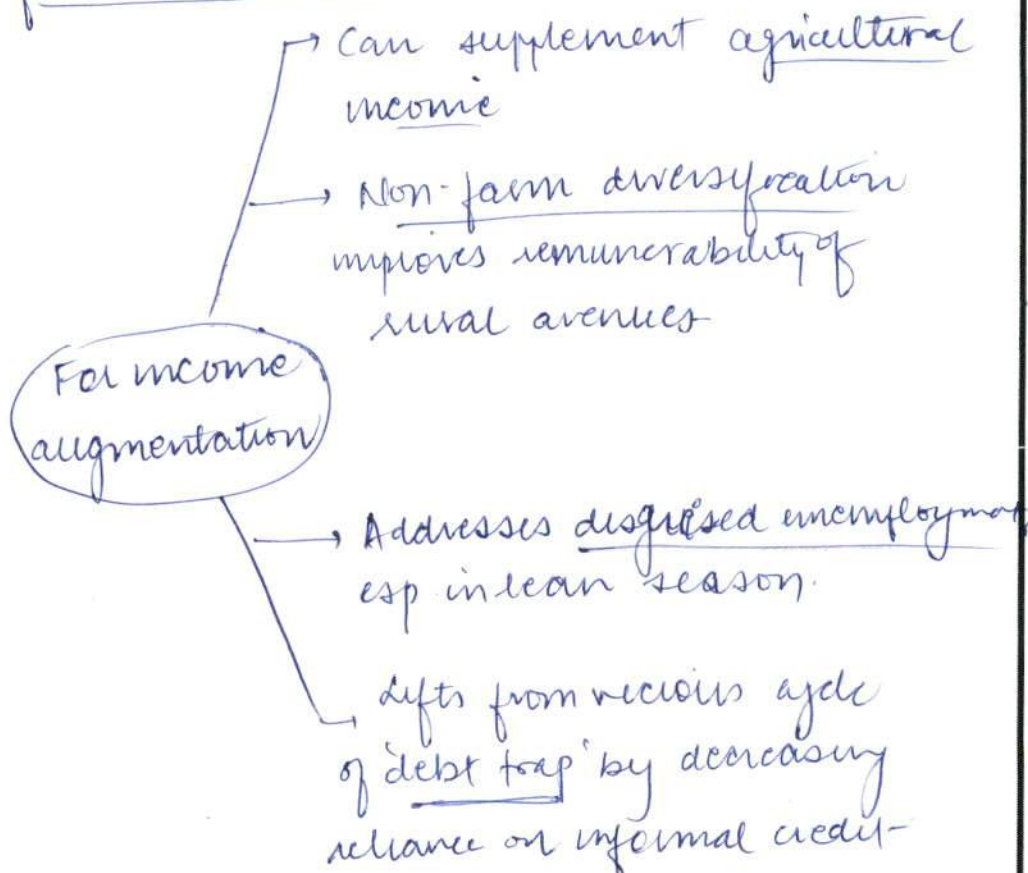 Can supplement agricultural
income
Non-farm diversification
improves remunerability of
rural avenues
For income
augmentation
Addresses disguised unemploymen
esp in lean season.
Lifts from vicious cycle
of 'debt trap' by decreasing
reliance on informal credit